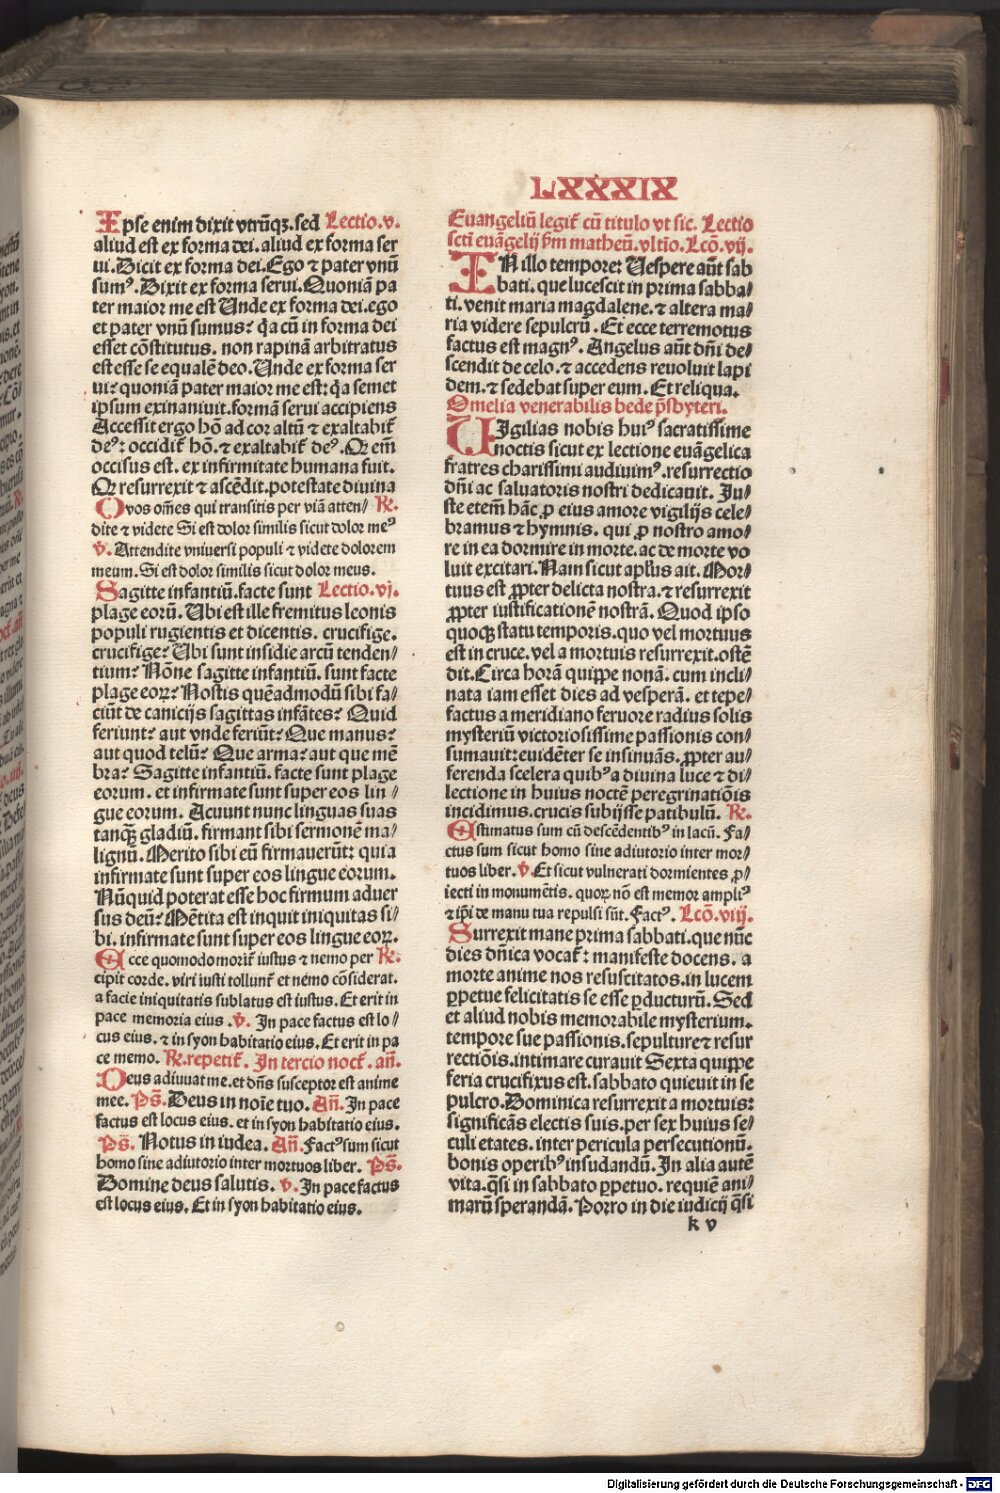 LXXXIX
Ipse enim dixit vtrũqꝫ. sed Lectio. v.
aliud est ex forma dei. aliud ex forma ser
ui. Dicit ex forma dei. Ego ⁊ pater vnũ
sumꝰ. Dixit ex forma serui. Quoniã pa
ter maior me est Unde ex forma dei. ego
et pater vnũ sumus: q̃a cũ in forma dei
esset cõstitutus. non rapinã arbitratus
est esse se equalẽ deo. Unde ex forma ser
ui: quoniã pater maior me est: q̃a semet
ipsum exinaniuit. formã serui accipiens
Accessit ergo hõ ad cor altũ ⁊ exaltabit᷑
deꝰ: occidit᷑ hõ. ⁊ exaltabit᷑ deꝰ. Qꝛ em̃
occisus est. ex infirmitate humana fuit.
Qꝛ resurrexit ⁊ ascẽdit. potestate diuina
O vos om̃es qui transitis per viã atten/ R̃.
dite ⁊ videte Si est dolor similis sicut dolor meꝰ
v̄. Attendite vniuersi populi ⁊ videte dolorem
meum. Si est dolor similis sicut dolor meus.
Sagitte infantiũ. facte sunt Lectio. vj.
plage eorũ. Ubi est ille fremitus leonis
populi rugientis et dicentis. crucifige.
crucifige? Ubi sunt insidie arcũ tenden/
tium? Nõne sagitte infantiũ. sunt facte
plage eoꝝ? Nostis quẽadmodũ sibi fa/
ciũt de cannicijs sagittas infãtes? Quid
feriunt? aut vnde feriũt? Que manus?
aut quod telũ? Que arma? aut que mẽ
bra? Sagitte infantiũ. facte sunt plage
eorum. et infirmate sunt super eos lin /
gue eorum. Acuunt nunc linguas suas
tanqꝫ gladiũ. firmant sibi sermonẽ ma/
lignũ. Merito sibi eũ firmauerũt: quia
infirmate sunt super eos lingue eorum.
Nũquid poterat esse hoc firmum aduer
sus deũ? Mẽtita est inquit iniquitas si/
bi. infirmate sunt super eos lingue eoꝝ.
Ecce quomodo morit᷑ iustus ⁊ nemo per R̃.
cipit corde. viri iusti tollunt᷑ et nemo cõsiderat.
a facie iniquitatis sublatus est iustus. Et erit in
pace memoria eius . v̄. In pace factus est lo/
cus eius. ⁊ in syon habitatio eius. Et erit in pa
ce memo. R̃. repetit᷑. In tercio noct᷑. añ.
Deus adiuuat me. et dñs susceptor est anime
mee. Ps̃. Deus in noĩe tuo. Añ. In pace
factus est locus eius. et in syon habitatio eius.
Ps̃. Notus in iudea. Añ. Factꝰ sum sicut
homo sine adiutorio inter mortuos liber. Ps̃.
Domine deus salutis. v̄. In pace factus
est locus eius. Et in syon habitatio eius.
Euangeliũ legit᷑ cũ titulo vt sic. Lectio
scti euãgelij ẜm matheũ. vltio. Lcõ. vij.
IN illo tempore: Uespere aũt sab
bati. que lucescit in prima sabba/
ti. venit maria magdalene. ⁊ altera ma/
ria videre sepulcrũ. Et ecce terremotus
factus est magnꝰ. Angelus aũt dñi de/
scendit de celo. ⁊ accedens reuoluit lapi
dem. ⁊ sedebat super eum. Et reliqua.
Omelia venerabilis bede p̃sbyteri.
UIgilias nobis huiꝰ sacratissime
noctis sicut ex lectione euãgelica
fratres charissimi audiuimꝰ. resurrectio
dñi ac saluatoris nostri dedicauit. Ju/
ste etem̃ hãc ꝓ eius amore vigilijs cele/
bramus ⁊ hymnis. qui ꝓ nostro amo/
re in ea dormire in morte. ac de morte vo
luit excitari. Nam sicut apl̃us ait. Mor/
tuus est ꝓpter delicta nostra. ⁊ resurrexit
ꝓpter iustificationẽ nostrã. Quod ipso
quoqꝫ statu temporis. quo vel mortuus
est in cruce. vel a mortuis resurrexit. ostẽ
dit. Circa horã quippe nonã. cum incli/
nata iam esset dies ad vesperã. et tepe/
factus a meridiano feruore radius solis
mysteriũ victoriosissime passionis con/
sumauit: euidẽter se insinuãs. ꝓpter au/
ferenda scelera quibꝰ a diuina luce ⁊ di/
lectione in huius noctẽ peregrinatiõis
incidimus. crucis subijsse patibulũ. R̃.
Estimatus sum cũ descẽdentibꝰ in lacũ. Fa/
ctus sum sicut homo sine adiutorio inter mor/
tuos liber. v̄. Et sicut vulnerati dormientes. ꝓ/
iecti in monumẽtis. quoꝝ nõ est memor ampliꝰ
⁊ ip̃i de manu tua repulsi sũt. Factꝰ. Lcõ. viij.
Surrexit mane prima sabbati. que nũc
dies dñica vocat᷑: manifeste docens. a
morte anime nos resuscitatos. in lucem
ꝑpetue felicitatis se esse ꝑducturũ. Sed
et aliud nobis memorabile mysterium.
tempore sue passionis. sepulture ⁊ resur
rectiõis. intimare curauit Sexta quippe
feria crucifixus est. sabbato quieuit in se
pulcro. Dominica resurrexit a mortuis:
significãs electis suis. per sex huius se/
culi etates. inter pericula persecutionũ.
bonis operibꝰ insudandũ. In alia autẽ
vita. q̃si in sabbato ꝑpetuo. requiẽ ani/
marũ sperandã. Porro in die iudicij q̃si
k v
Digitalisierung gefördert durch die Deutsche Forschungsgemeinschaft - DFG